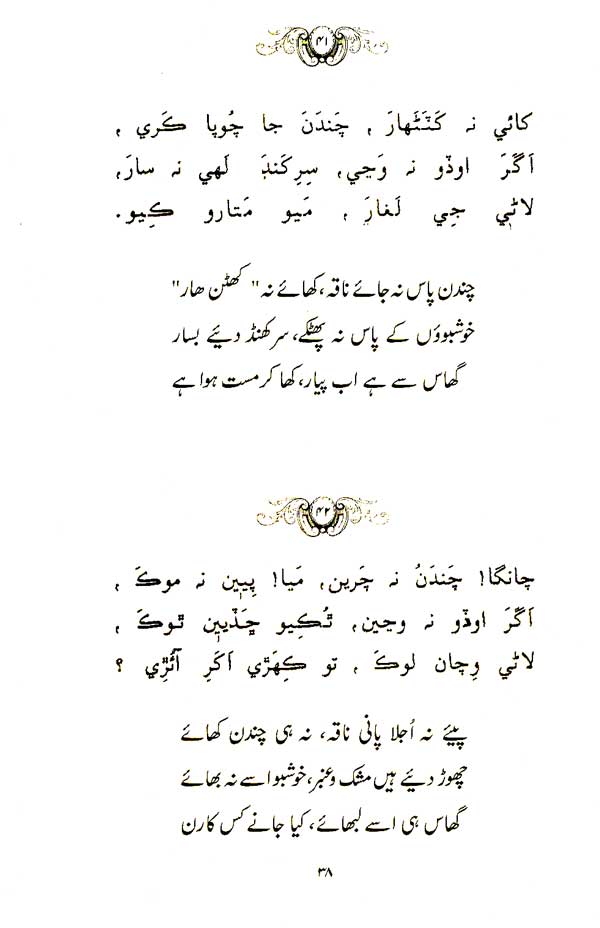 ۴۱
کائي نہ کَٽَڻهارَ ، چَندَنَ جا چُوپا ڪَري ،
اَگَرَ اوڏو نہ وَڃي، سِرِکَنڊَ لَهي نہ سارَ،
لاڻيءَ جي لَغارَ ، مَيو مَتارو ڪِيو.
چندن پاس نہ جائے ناقہ، کھائے نہ "کھٹن ھار"
خوشبوؤں کے پاس نہ پھٹکے، سرکھنڈ دئیے بسار
گھاس سے ہے اب پیار، کھا کر مست ہوا ہے
۴۲
چانگا! چَندَنُ نہ چَرين، مَيا! پِيين نہ موڪَ ،
اَگَرَ اوڏو نہ وڃين، ٿُڪيو ڇَڏيين ٿوڪَ ،
لاڻي وِچان لوڪَ ، تو ڪِهَڙي اَکَرِ آئُڙي ؟
پیئے نہ اُجلا پانی ناقہ، نہ ہی چندن کھائے
چھوڑ دئیے ہیں مشک و عنبر، خوشبو اسے نہ بھائے
گھاس ہی اسے لبھائے، کیا جانے کس کارن
۳۸